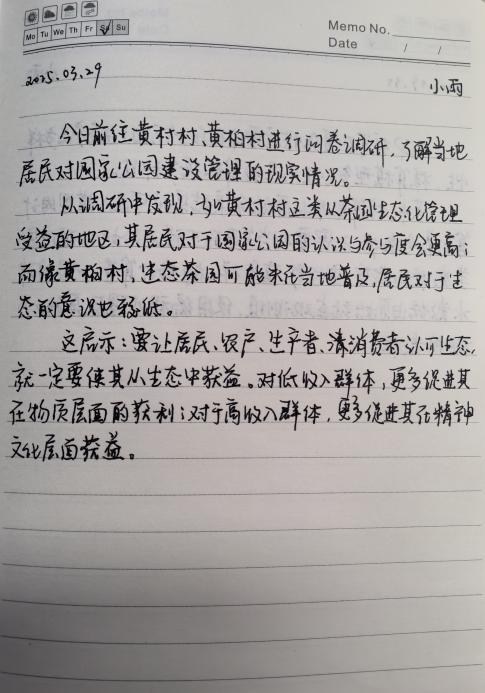 Mo Tu We Th Fr Sa Su
Memo No.
Date / /
2025.03.29 小雨
今日前往黄村村、黄柏村进行问卷调研，了解当地
居民对国家公园建设管理的现实情况。
从调研中发现，如黄村村这类从茶园生态化管理
受益的地区，其居民对于国家公园的认识与参与度会更高；
而像黄柏村，生态茶园可能未在当地普及，居民对于生
态的意识也稍低。
这启示：要让居民、农户、生产者、消费者认可生态，
就一定要使其从生态中获益。对低收入群体，更多促进其
在物质层面的获利；对于高收入群体，更多促进其在精神
文化层面获益。